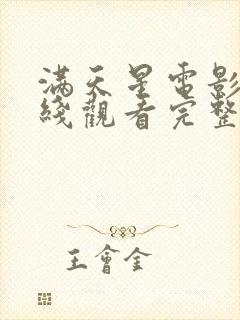 滿天星電影
綫觀看完整
王會金